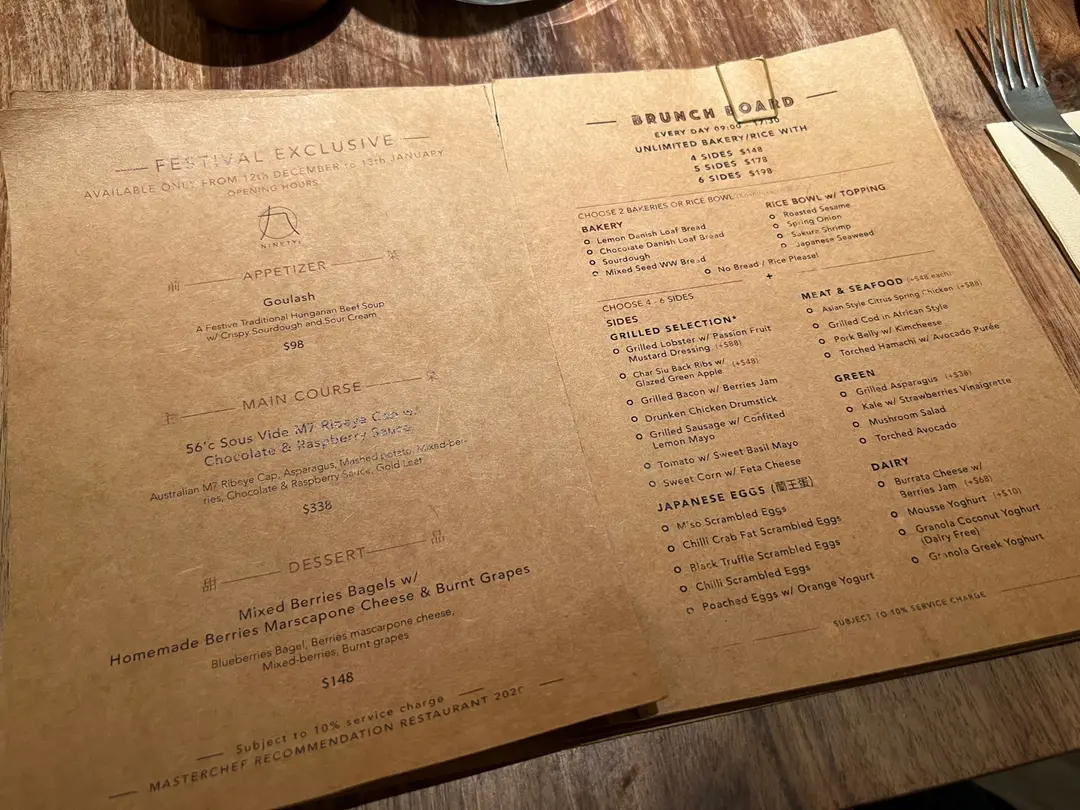 FESTIVAL EXCLUSIVE
AVAILABLE ONLY FROM 12th DECEMBER to 13th JANUARY
OPENING HOURS
NINETYs
前 APPETIZER 菜
Goulash
A Festive Traditional Hungarian Beef Soup
w/ Crispy Sourdough and Sour Cream
$98
主 MAIN COURSE 菜
56'c Sous Vide M7 Ribeye Cap w/
Chocolate & Raspberry Sauce
Australian M7 Ribeye Cap, Asparagus, Mashed potato, Mixed-ber-
ries, Chocolate & Raspberry Sauce, Gold Leaf
$338
甜 DESSERT 品
Mixed Berries Bagels w/
Homemade Berries Marscapone Cheese & Burnt Grapes
Blueberries Bagel, Berries mascarpone cheese,
Mixed-berries, Burnt grapes
$148
Subject to 10% service charge
MASTERCHEF RECOMMENDATION RESTAURANT 2020
BRUNCH BOARD
EVERY DAY 09:00 - 17:30
UNLIMITED BAKERY/RICE WITH
4 SIDES $148
5 SIDES $178
6 SIDES $198
CHOOSE 2 BAKERIES OR RICE BOWL
BAKERY
Lemon Danish Loaf Bread
Chocolate Danish Loaf Bread
Sourdough
Mixed Seed WW Bread
RICE BOWL w/ TOPPING
Roasted Sesame
Spring Onion
Sakura Shrimp
Japanese Seaweed
No Bread / Rice Please!
+
CHOOSE 4 - 6 SIDES
SIDES
GRILLED SELECTION*
Grilled Lobster w/ Passion Fruit
Mustard Dressing (+$88)
Char Siu Back Ribs w/ (+$48)
Glazed Green Apple
Grilled Bacon w/ Berries Jam
Drunken Chicken Drumstick
Grilled Sausage w/ Confited
Lemon Mayo
Tomato w/ Sweet Basil Mayo
Sweet Corn w/ Feta Cheese
JAPANESE EGGS (蘭王蛋)
Miso Scrambled Eggs
Chilli Crab Fat Scrambled Eggs
Black Truffle Scrambled Eggs
Chilli Scrambled Eggs
Poached Eggs w/ Orange Yogurt
MEAT & SEAFOOD (+$48 each)
Asian Style Citrus Spring Chicken (+$88)
Grilled Cod in African Style
Pork Belly w/ Kimcheese
Torched Hamachi w/ Avocado Purée
GREEN
Grilled Asparagus (+$38)
Kale w/ Strawberries Vinaigrette
Mushroom Salad
Torched Avocado
DAIRY
Burrata Cheese w/
Berries Jam (+$68)
Mousse Yoghurt (+$10)
Granola Coconut Yoghurt
(Dairy Free)
Granola Greek Yoghurt
SUBJECT TO 10% SERVICE CHARGE